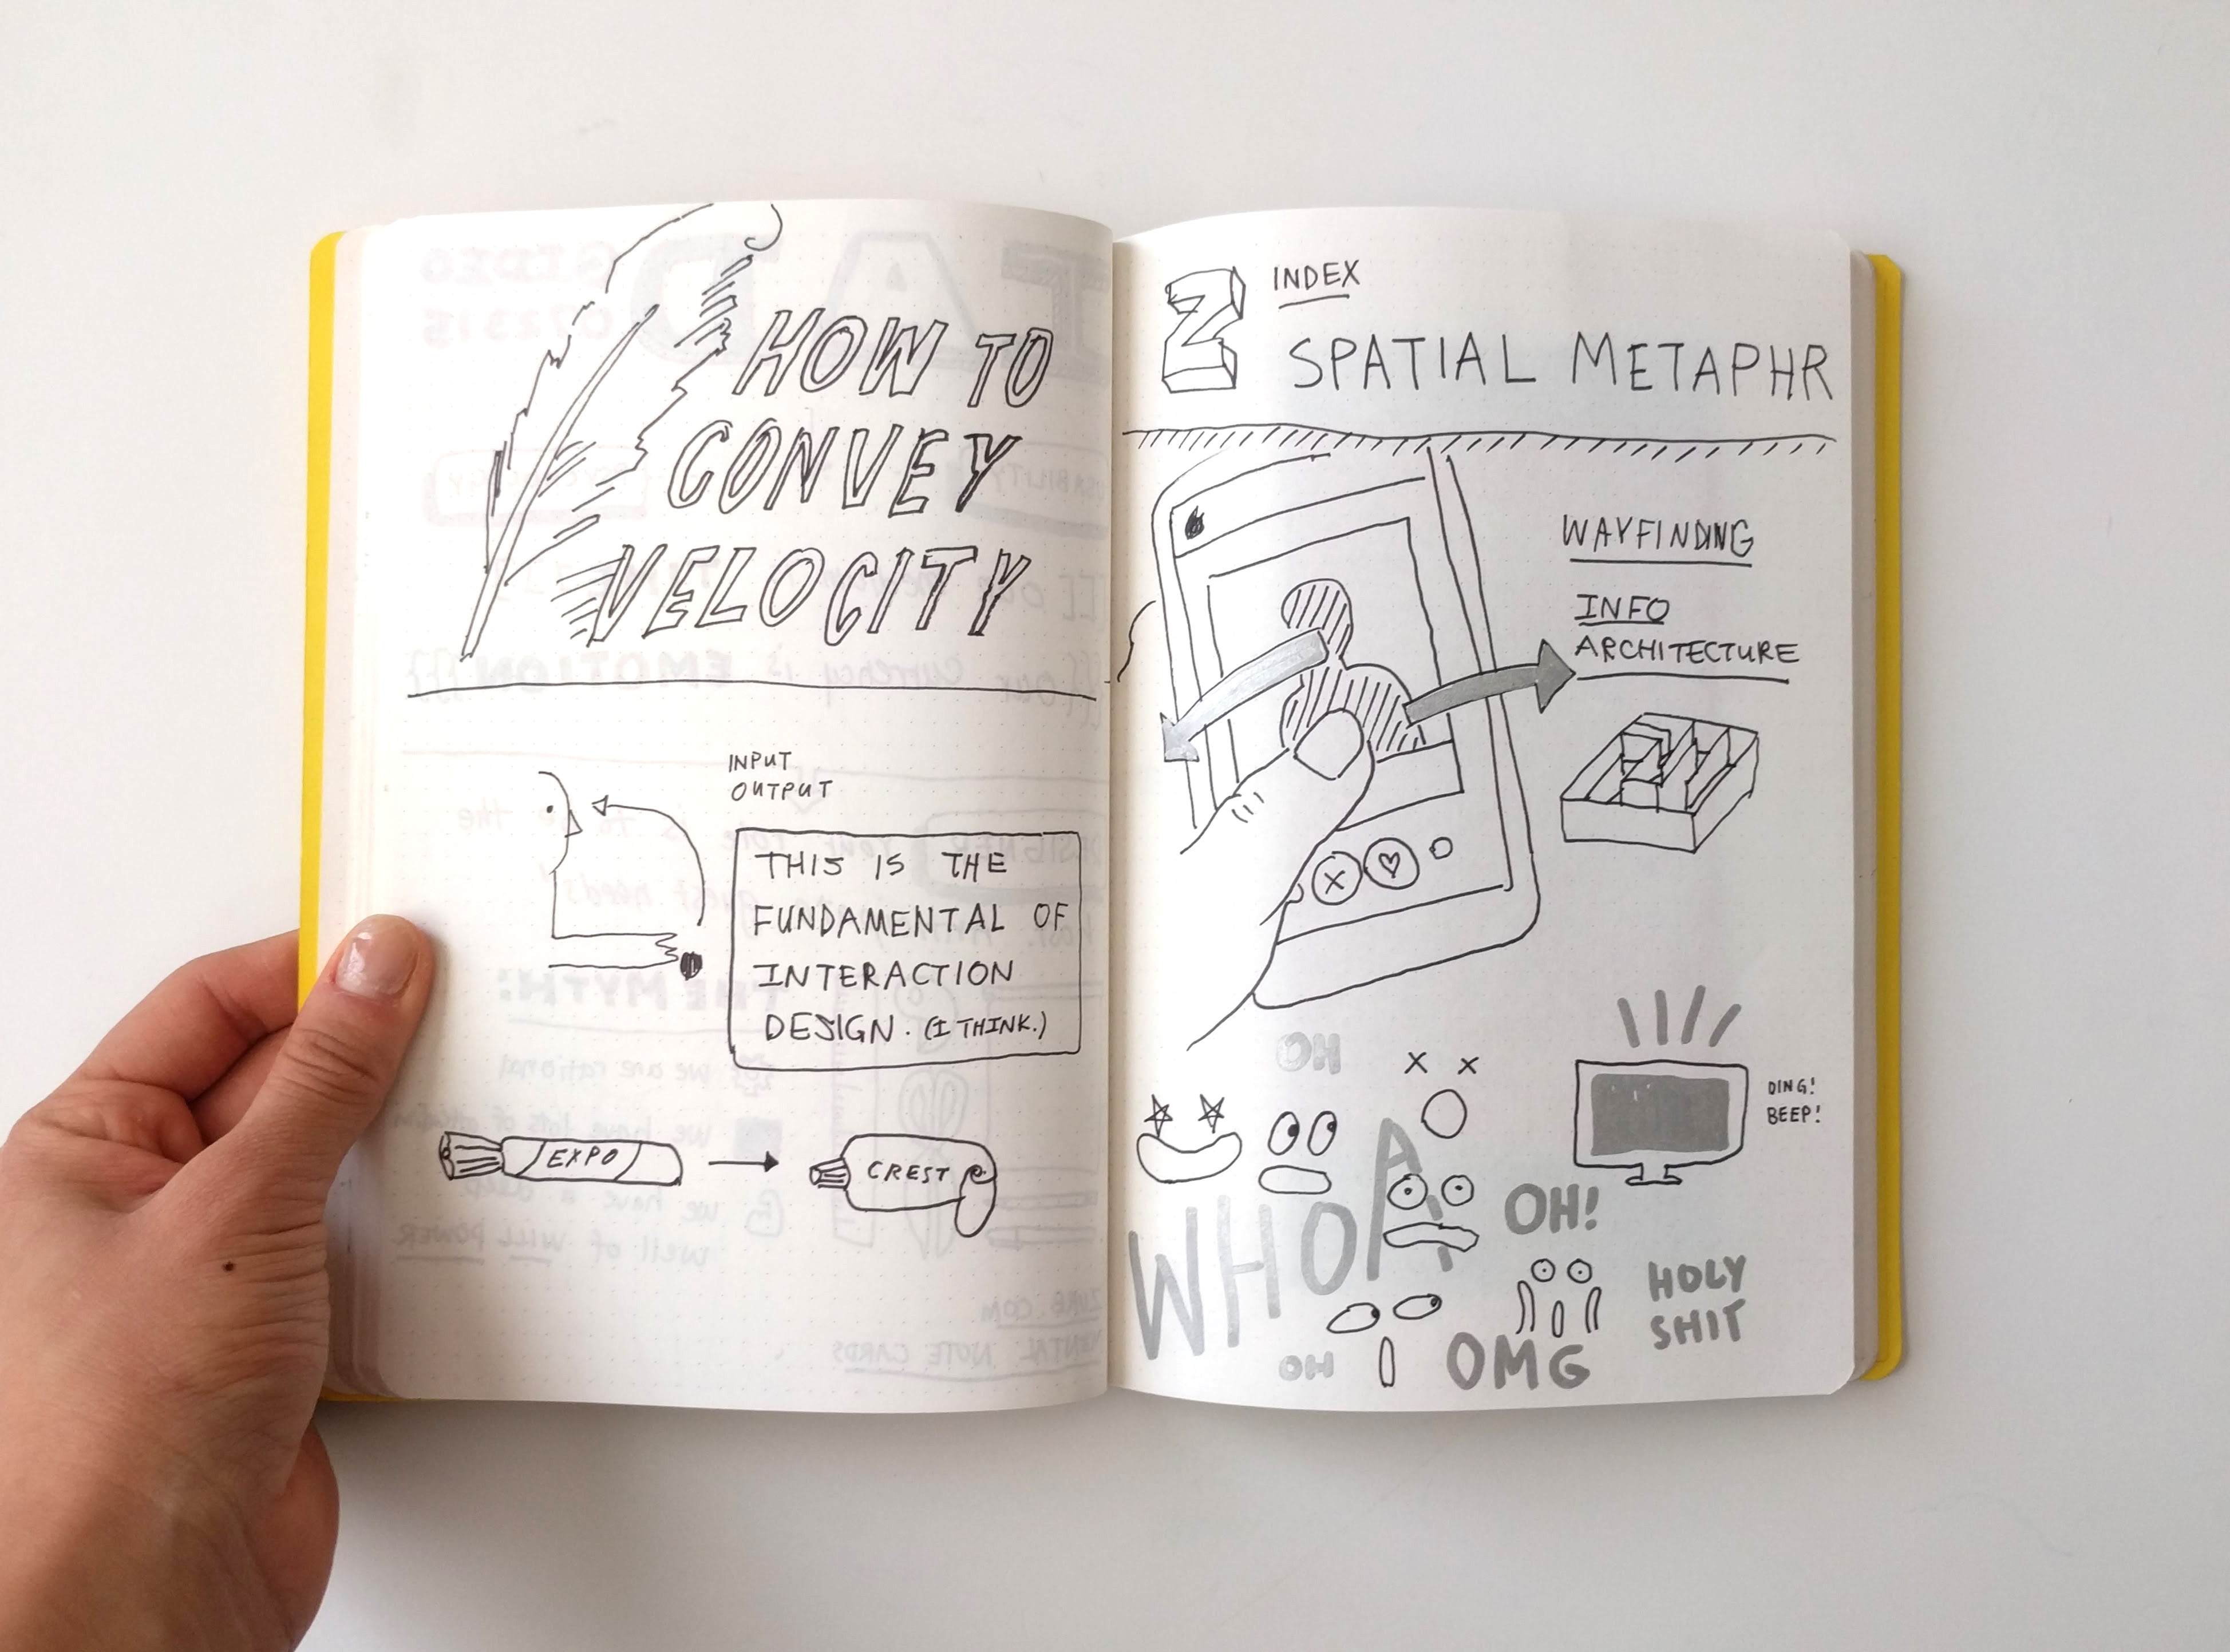 HOW TO
CONVEY
VELOCITY
INPUT
OUTPUT
THIS IS THE
FUNDAMENTAL OF
INTERACTION
DESIGN. (I THINK.)
EXPO
CREST
Z
INDEX
SPATIAL METAPHR
WAYFINDING
INFO
ARCHITECTURE
OH
DING!
BEEP!
WHOA
OH!
HOLY
SHIT
OH
OMG